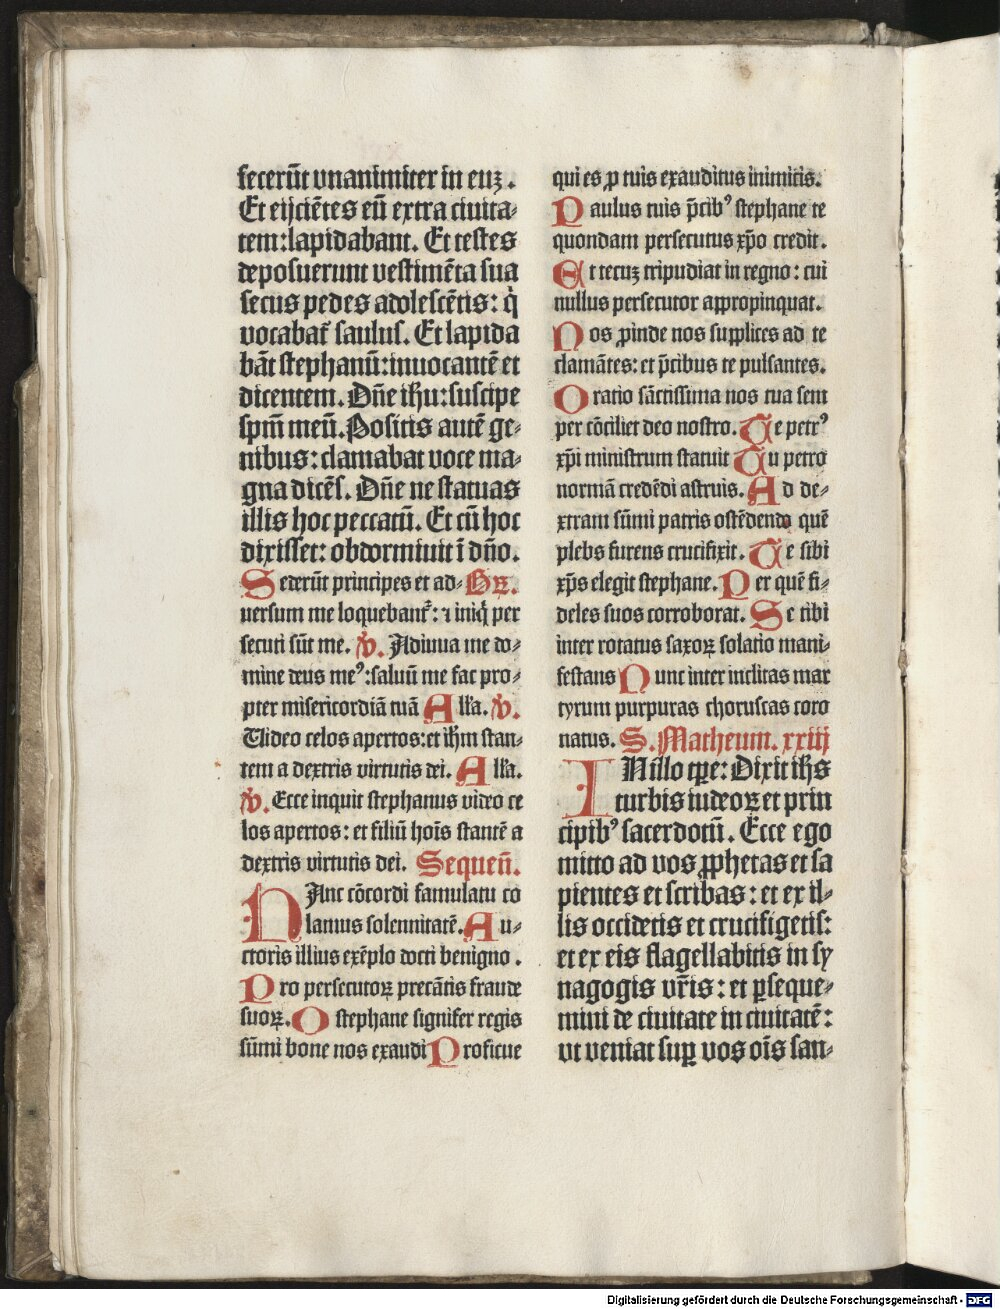 fecerūt vnanimiter in euꝫ.
Et eijciētes eū extra ciuita⸗
tem: lapidabant. Et testes
deposuerunt vestimēta sua
secus pedes adolescētis: q̇
vocabat᷑ saulus. Et lapida
bāt stephanū: inuocantē et
dicentem. Dn̄e ih̄u: suscipe
sp̄m meū. Positis autē ge⸗
nibus: clamabat voce ma⸗
gna dicēs. Dn̄e ne statuas
illis hoc peccatū. Et cū hoc
dixisset: obdormiuit ī dn̄o.
Sederūt principes et ad⸗ Gꝛ.
uersum me loquebant᷑: ⁊ iniq̇ per
secuti sūt me. ℣. Adiuua me do⸗
mine deus meꝰ: saluū me fac pro⸗
pter misericordiā tuā Alla. ℣.
Video celos apertos: et ih̄m stan⸗
tem a dextris virtutis dei. Alla.
℣. Ecce inquit stephanus video ce
los apertos: et filiū hoīs stantē a
dextris virtutis dei. Sequen̄.
HAnc cōcordi famulatu co
lamus solennitatē. Au⸗
ctoris illius exēplo docti benigno.
Pro persecutoꝝ precātis fraude
suoꝝ. O stephane signifer regis
sūmi bone nos exaudi Proficue
qui es ꝓ tuis exauditus inimicis.
Paulus tuis p̄cibꝰ stephane te
quondam persecutus xp̄o credit.
Et tecuꝫ tripudiat in regno: cui
nullus persecutor appropinquat.
Nos ꝓinde nos supplices ad te
clamātes: et p̄cibus te pulsantes.
Oratio sāctissima nos tua sem
per cōciliet deo nostro. Te petrꝰ
xp̄i ministrum statuit Tu petro
normā credēdi astruis. Ad de⸗
xtram sūmi patris ostēdendo quē
plebs furens crucifixit. Te sibi
xp̄s elegit stephane. Per quē fi⸗
deles suos corroborat. Se tibi
inter rotatus saxoꝝ solatio mani⸗
festans Nunc inter inclitas mar
tyrum purpuras choruscas coro
natus. S. Matheum. xxiij
IN illo tp̄e: Dixit ih̄s
turbis iudeoꝝ et prin
cipibꝰ sacerdotū. Ecce ego
mitto ad vos ꝓphetas et sa
pientes et scribas: et ex il⸗
lis occidetis et crucifigetis:
et ex eis flagellabitis in sy
nagogis vr̄is: et ꝑseque⸗
mini de ciuitate in ciuitatē:
vt veniat suꝑ vos oīs san⸗
Digitalisierung gefördert durch die Deutsche Forschungsgemeinschaft - DFG